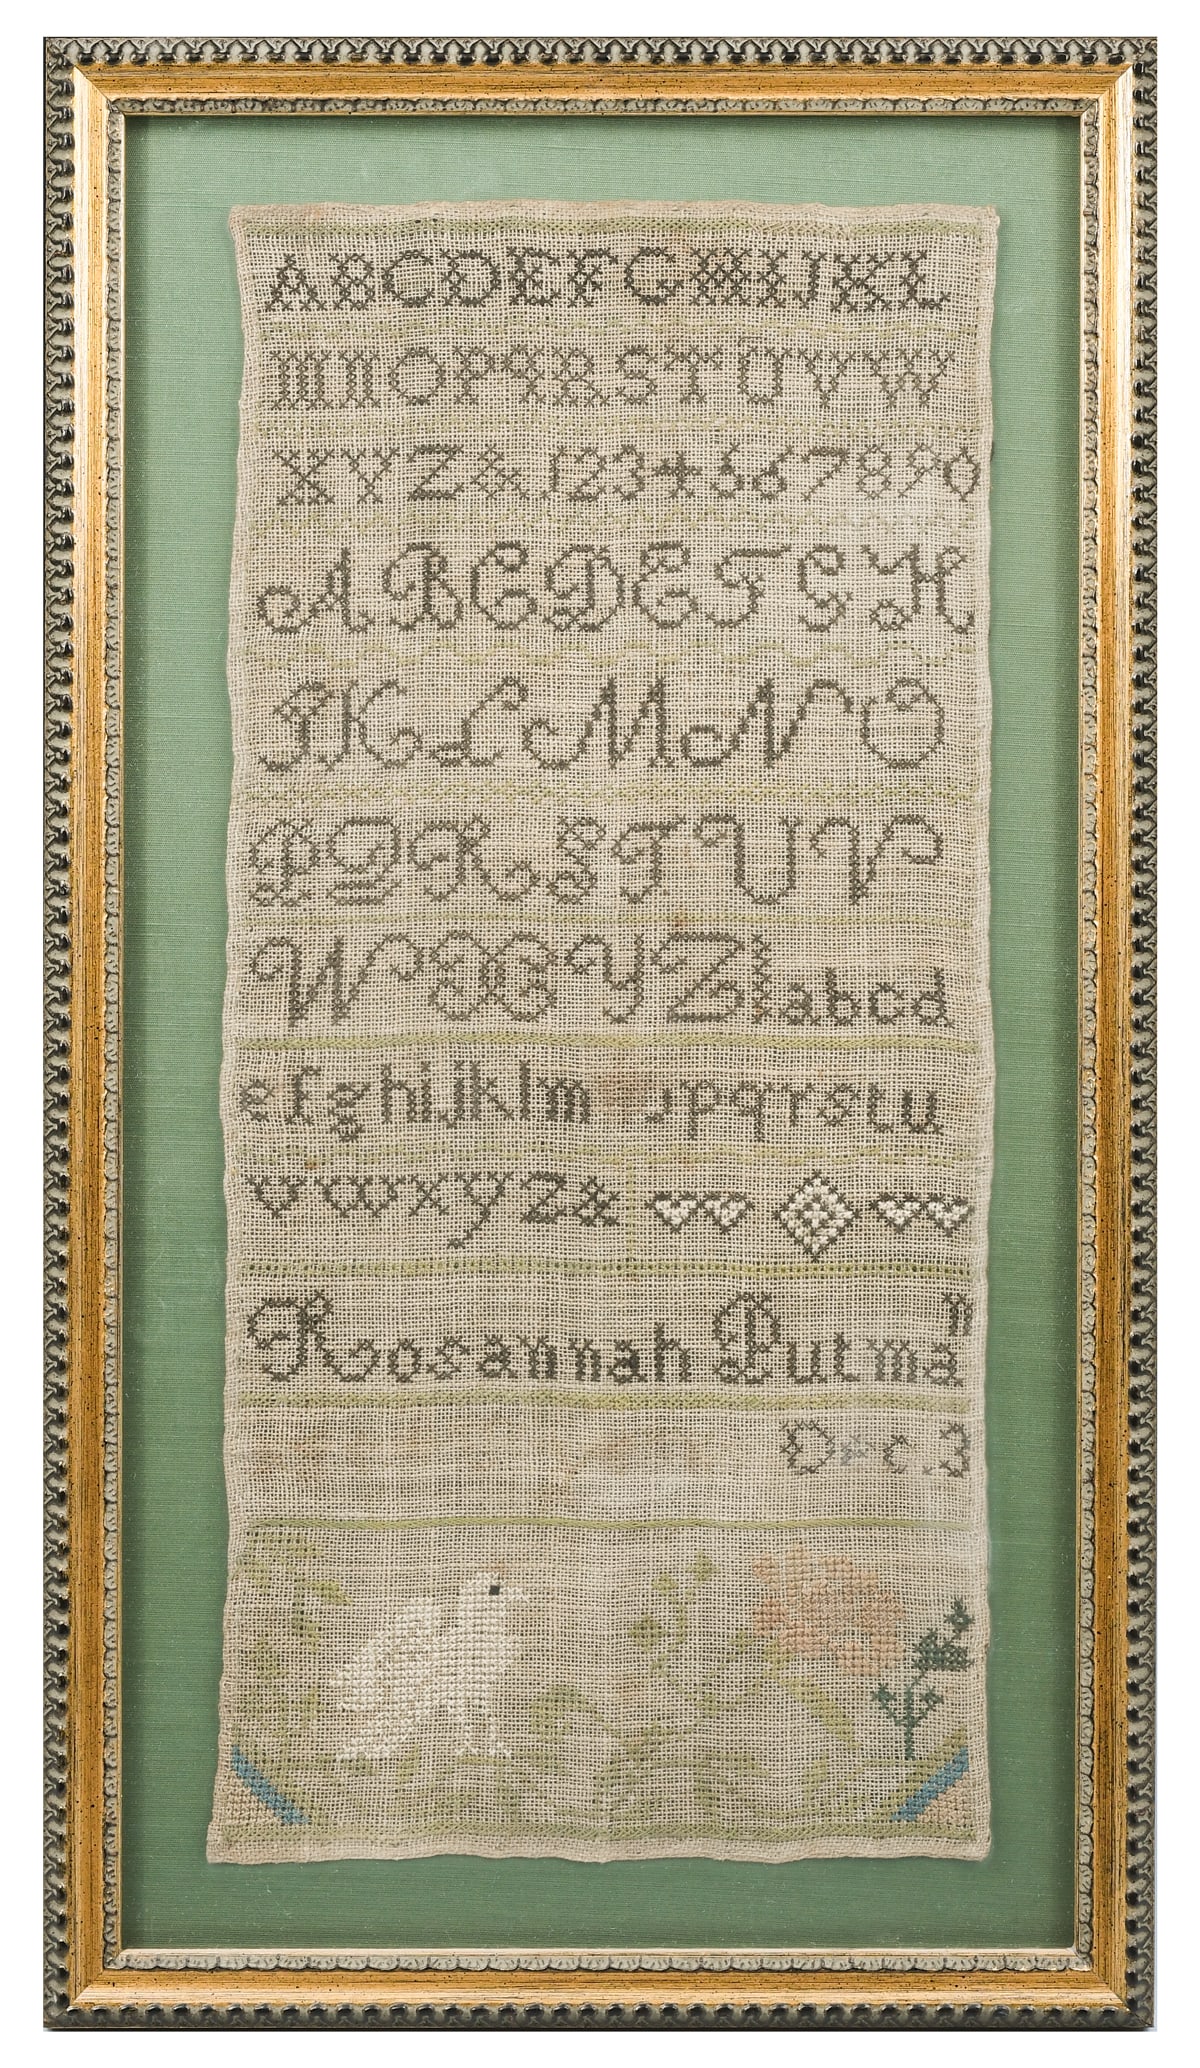 ABCDEFGHIJKL
MNOPQRSTUVW
XYZ&1234567890
ABCDEFGH
IKLMNO
PQRSTUV
WXYZ abcd
efghijklm pqrstu
vwxyz&
Rosannah Putman
Dec 3